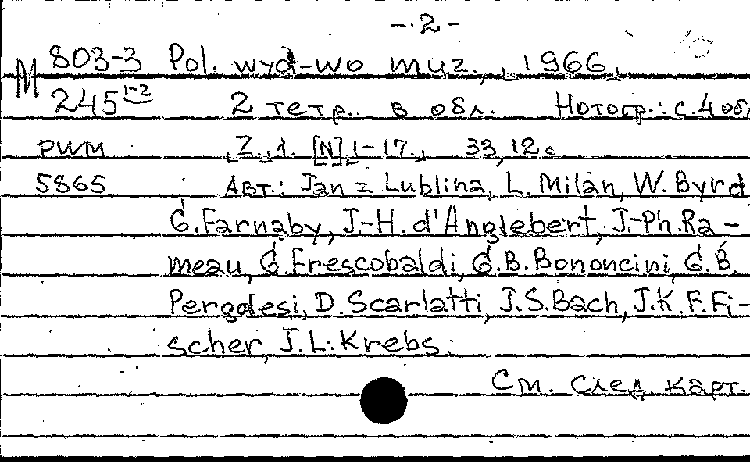 - 2 -
М 803-3 Pol. wyd-wo muz., 1966,
245 1-2 2 тетр. в обл. Нотогр.: с. 4 об
PWM Z. 1. [N] 1-17. 33,12 с
5865 Авт.: Jan z Lublina, L. Milán, W. Byrd
G. Farnaby, J.-H. d'Anglebert, J-Ph. Ra-
meau, G. Frescobaldi, G. B. Bononcini, G. B.
Pergolesi, D. Scarlatti, J. S. Bach, J. K. F. Fi-
scher, J. L. Krebs.
См. след карт.